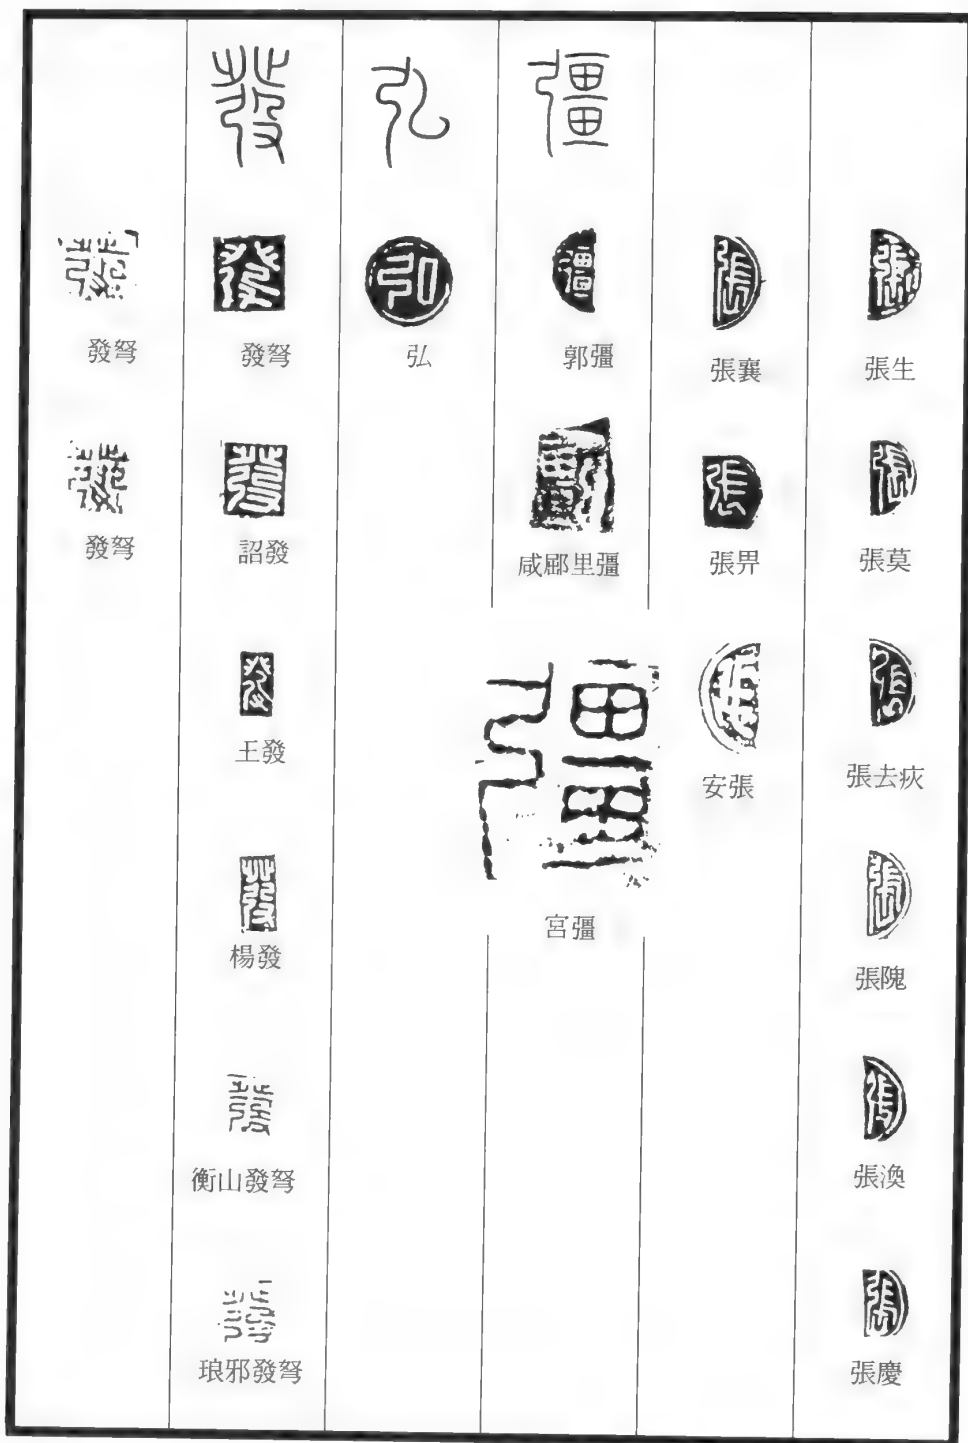 張生
張莫
張去疢
張隗
張渙
張慶
張襄
張畀
安張
彊
郭彊
咸郿里彊
宮彊
弘
弘
發
發弩
詔發
王發
楊發
衡山發弩
琅邪發弩
發弩
發弩